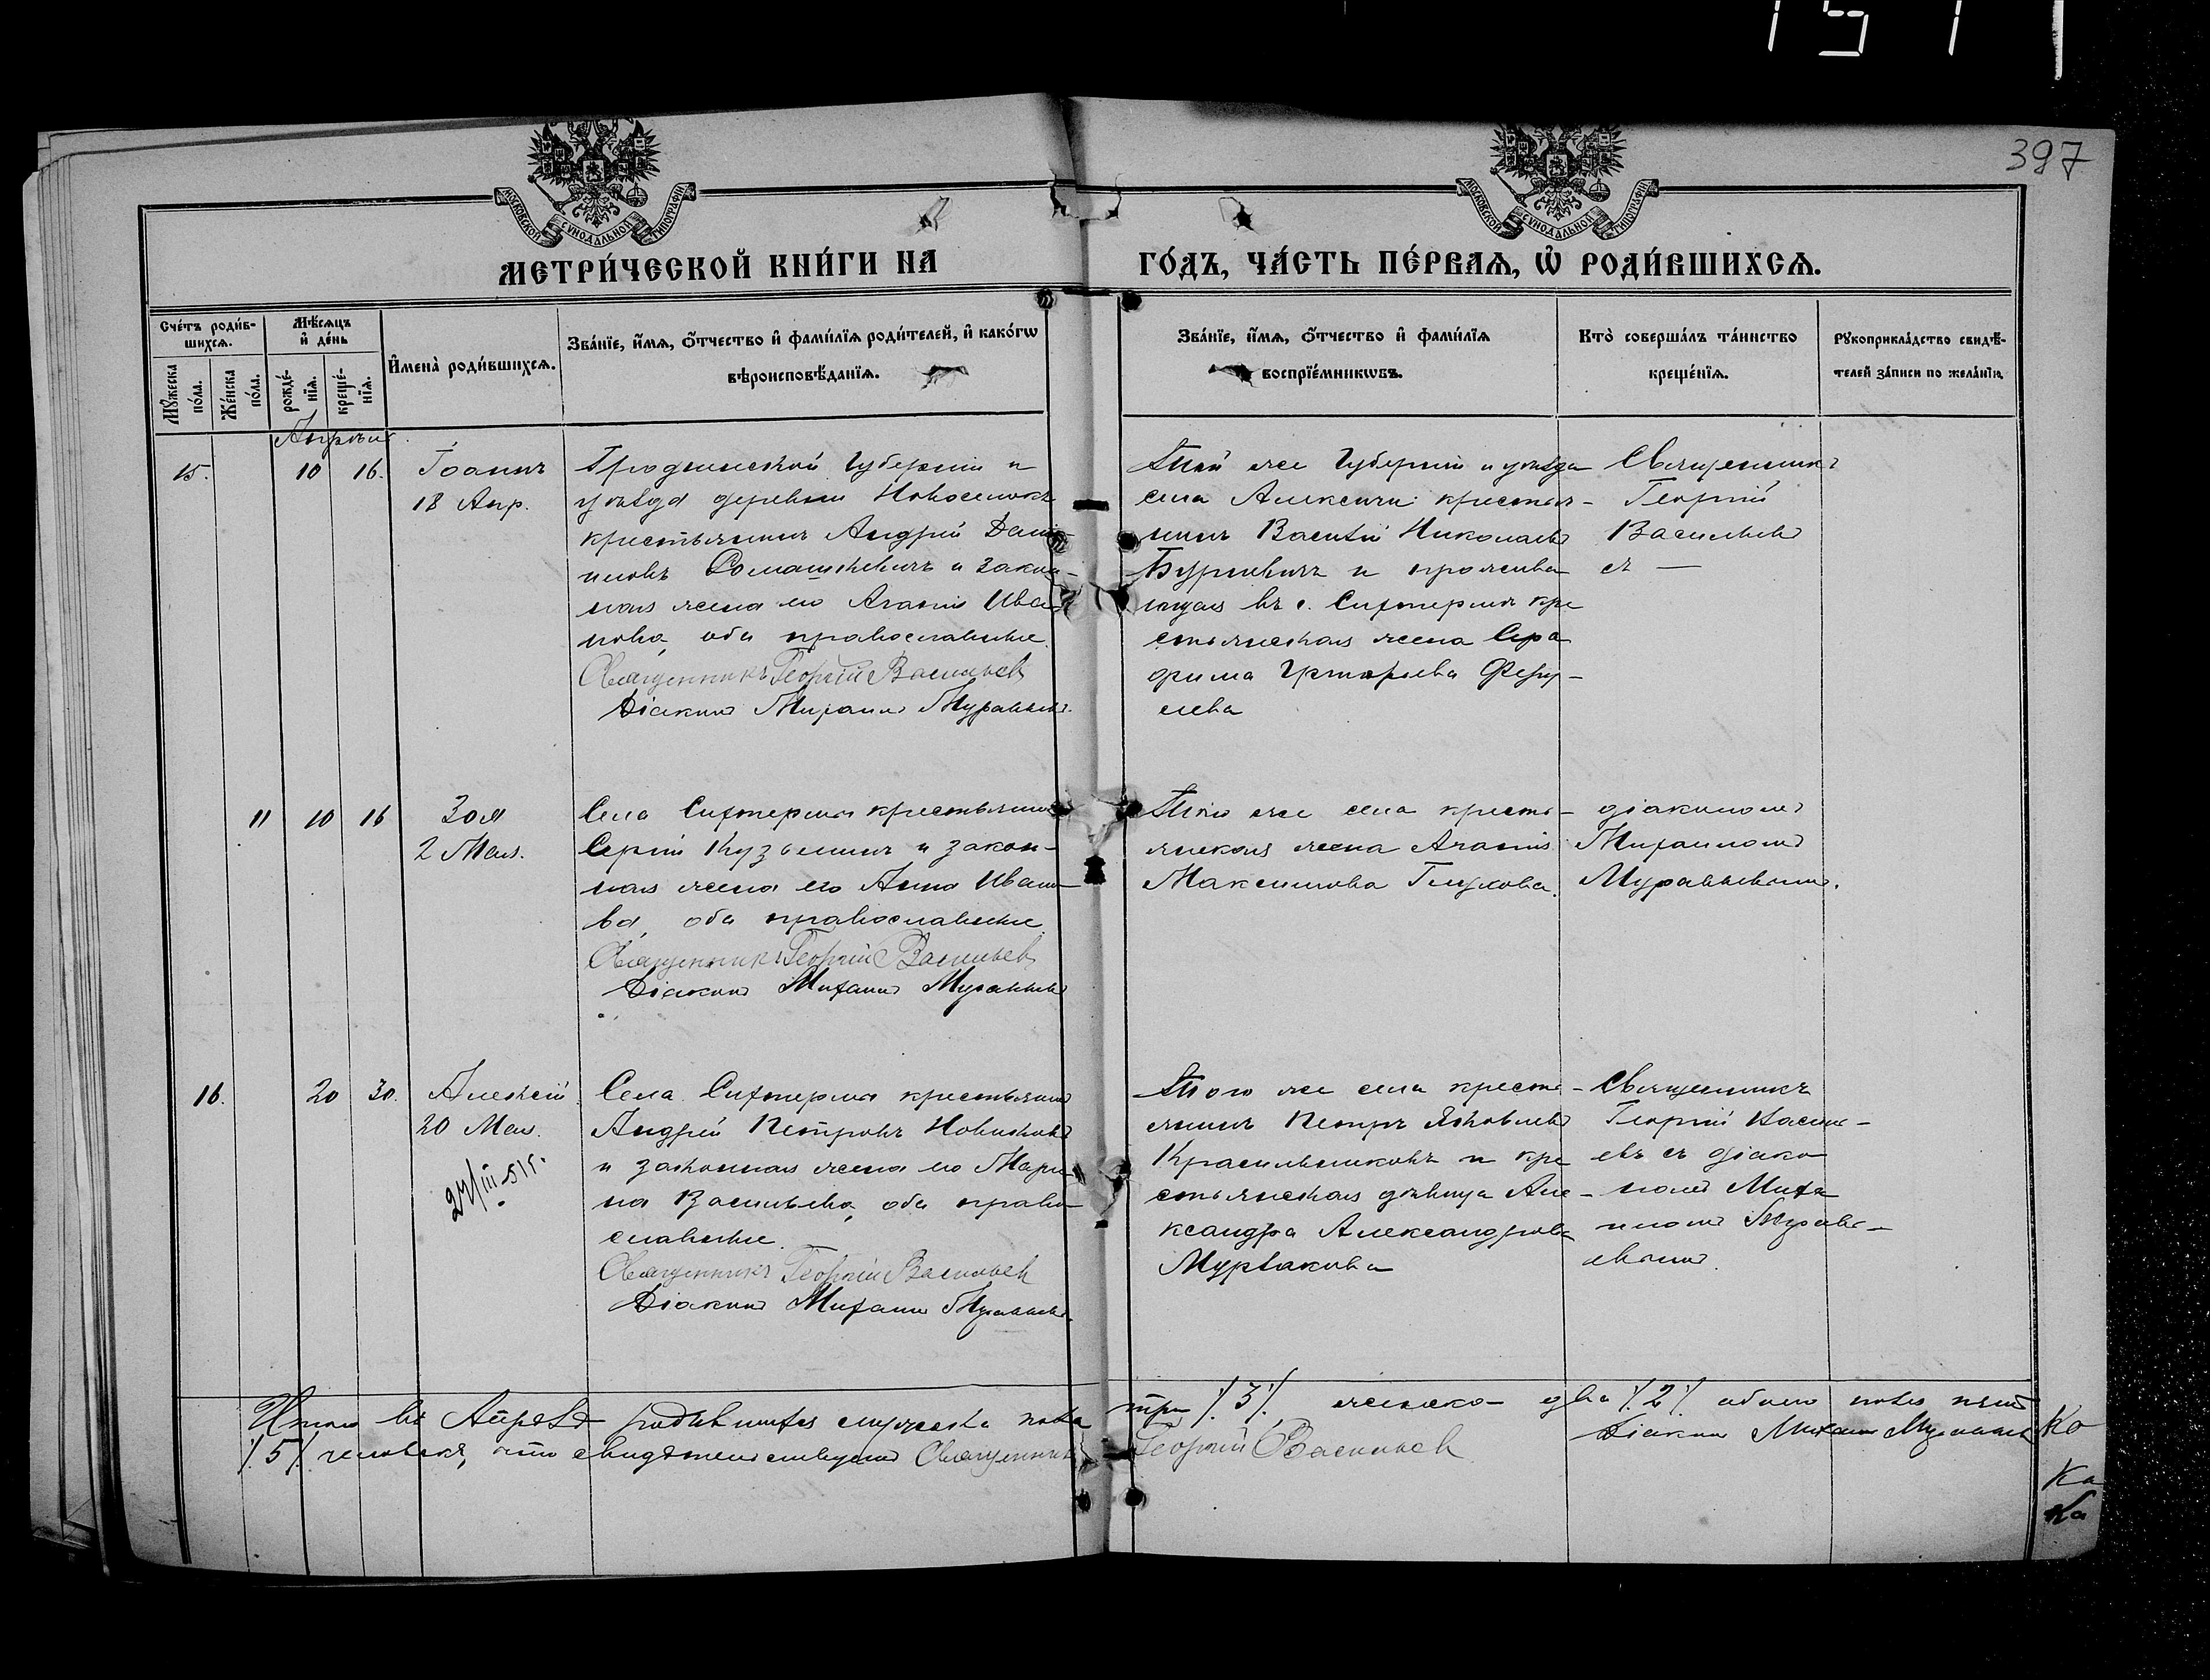 1511
397
МОСКОВСКОЙ СѴНОДАЛЬНОЙ ТИПОГРАФІИ
МОСКОВСКОЙ СѴНОДАЛЬНОЙ ТИПОГРАФІИ
МЕТРИ́ЧЕСКОЙ КНИ́ГИ НА
ГО́ДЪ, ЧА́СТЬ ПЕ́РВАѦ, Ѡ҆ РОДИ́ВШИХСѦ.
Сче́тъ роди́в-
шихсѧ.
Мꙋ́жеска
по́ла.
Же́нска
по́ла.
Мѣ́сѧцъ
и҆ де́нь
рожде́-
нїѧ.
креще́-
нїѧ.
И҆мена̀ роди́вшихсѧ.
Зва́нїе, и҆́мѧ, ѻ҆́тчество и҆ фами́лїѧ роди́телей, и҆ како́гѡ
вѣроисповѣ́данїѧ.
Зва́нїе, и҆́мѧ, ѻ҆́тчество и҆ фами́лїѧ
воспрїе́мникѡвъ.
Кто̀ соверша́лъ та́инство
креще́нїѧ.
Рꙋкоприкла́дство свидѣ́-
телей за́писи по жела́нїю.
Апрѣль.
15.
10
16.
Іоаннъ
18 Апр.
Гродненской губерніи и
уѣзда деревни Новоселокъ
крестьянинъ Андрей Дани-
иловъ Ромашкевичъ и закон-
ная жена его Агафія Ива-
нова, оба православные.
Священникъ Георгій Васильевъ
Діаконъ Михаилъ Муравьевъ.
Той же губерніи и уѣзда
села Алексичи крестья-
нинъ Василій Николаевъ
и прожива
ющая въ с. Сихтерма кре
стьянская жена Сера
фима Григорьева
Священникъ
Георгій
Васильевъ
съ —
11
10
16
Зоя
2 Мая.
Села Сихтерма крестьянинъ
Сергій Кузьминъ и закон-
ная жена его Анна Ивано-
ва, оба православные.
Священникъ Георгій Васильевъ
Діаконъ Михаилъ Муравьевъ
Того же села кресть-
янская жена Агафія
Максимова Глухова.
діакономъ
Михаиломъ
Муравьевымъ.
16.
20
30.
Алексій
20 Мая.
24/III-51г.
Села Сихтерма крестьянинъ
Андрей Петровъ Новиковъ
и законная жена его Мари-
на Васильева, оба право-
славные.
Священникъ Георгій Васильевъ
Діаконъ Михаилъ Муравьевъ.
Того же села кресть-
янинъ Петръ Яковлевъ
Красильниковъ и кре
стьянская дѣвица Але-
ксандра Александрова
Мурзакова
Священникъ
Георгій Василь-
евъ съ діако
номъ Миха
иломъ Муравь-
евымъ.
Итого въ Апрѣлѣ родившихся мужеска пола
три /.3/., женска два /.2/. обоего пола пять
/.5/. человѣкъ, что свидѣтельствуемъ Священникъ
Георгій Васильевъ
Діаконъ Михаилъ Муравьевъ
Ко
Ка
Ка